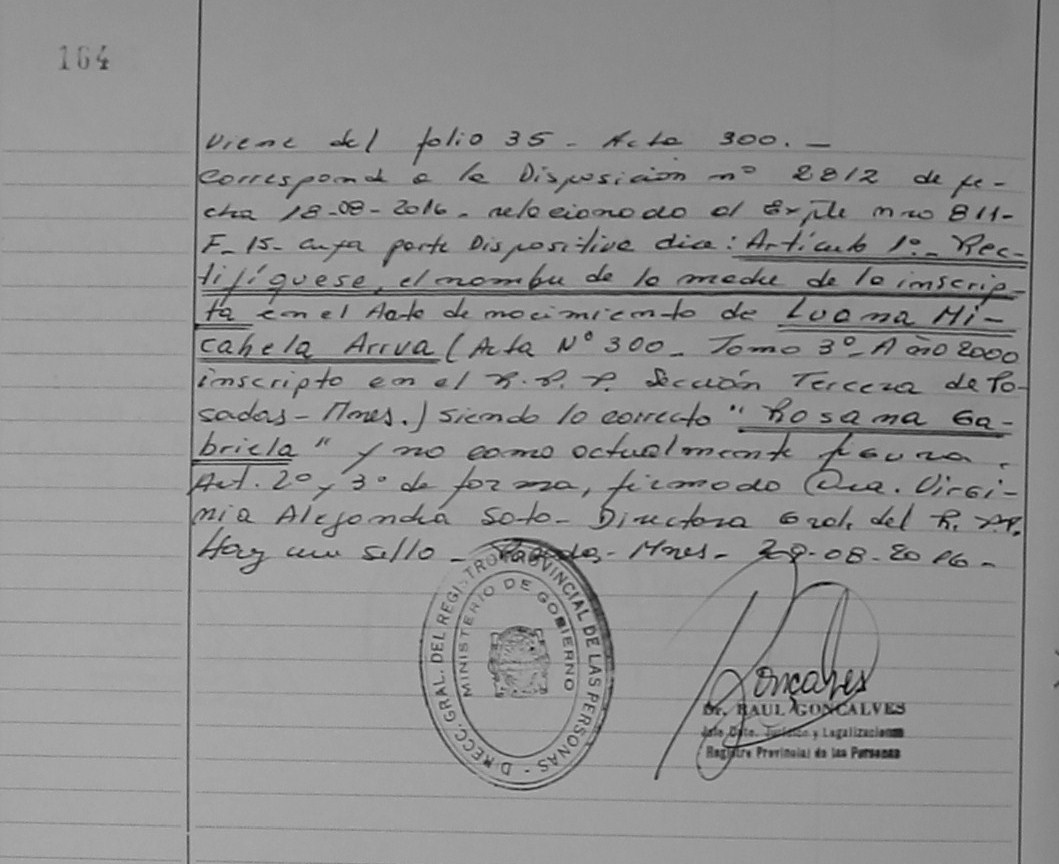 164
Viene del folio 35 - Acta 300. -
Corresponde a la Disposición nº 2812 de fe-
cha 18-08-2016 - relacionado al Expte nro 811-
F-15- cuya parte Dispositiva dice: Artículo 1º- Rec-
tifíquese, el nombre de la madre de la inscrip-
ta en el Acta de nacimiento de Luana Mi-
cahela Arrua (Acta Nº 300 - Tomo 3º- Año 2000
inscripto en el R.P.P. Sección Tercera de Po-
sadas - Mnes.) siendo lo correcto "Rosana Ga-
briela" y no como actualmente figura.
Art. 2º y 3º de forma, firmado Dra. Virgi-
nia Alejandra Soto - Directora Gral. del R.P.P.
Hay un sello - Posadas - Mnes - 29-08-2016 -
DIRECC. GRAL. DEL REGISTRO PROVINCIAL DE LAS PERSONAS -
MINISTERIO DE GOBIERNO
Goncalves
Dr. RAUL GONCALVES
Jefe Dpto. Jurídico y Legalizaciones
Registro Provincial de las Personas